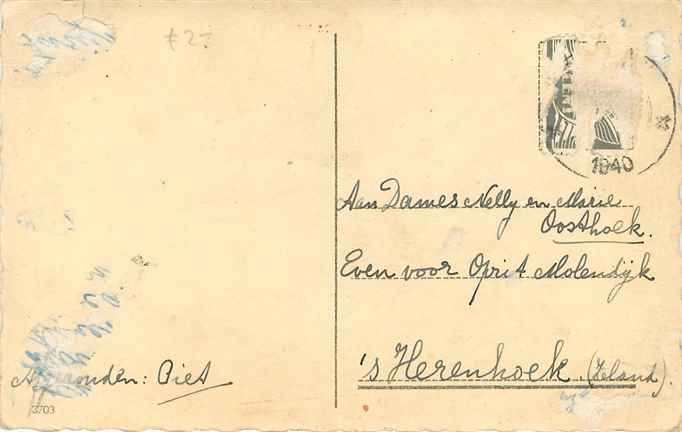 £ 2=
2.
1940
Aan Dames Nelly en Marie
Oosthoek.
Even voor Oprit Molendijk
's Herenhoek. (Zeland).
Afzonden: Piet
3703